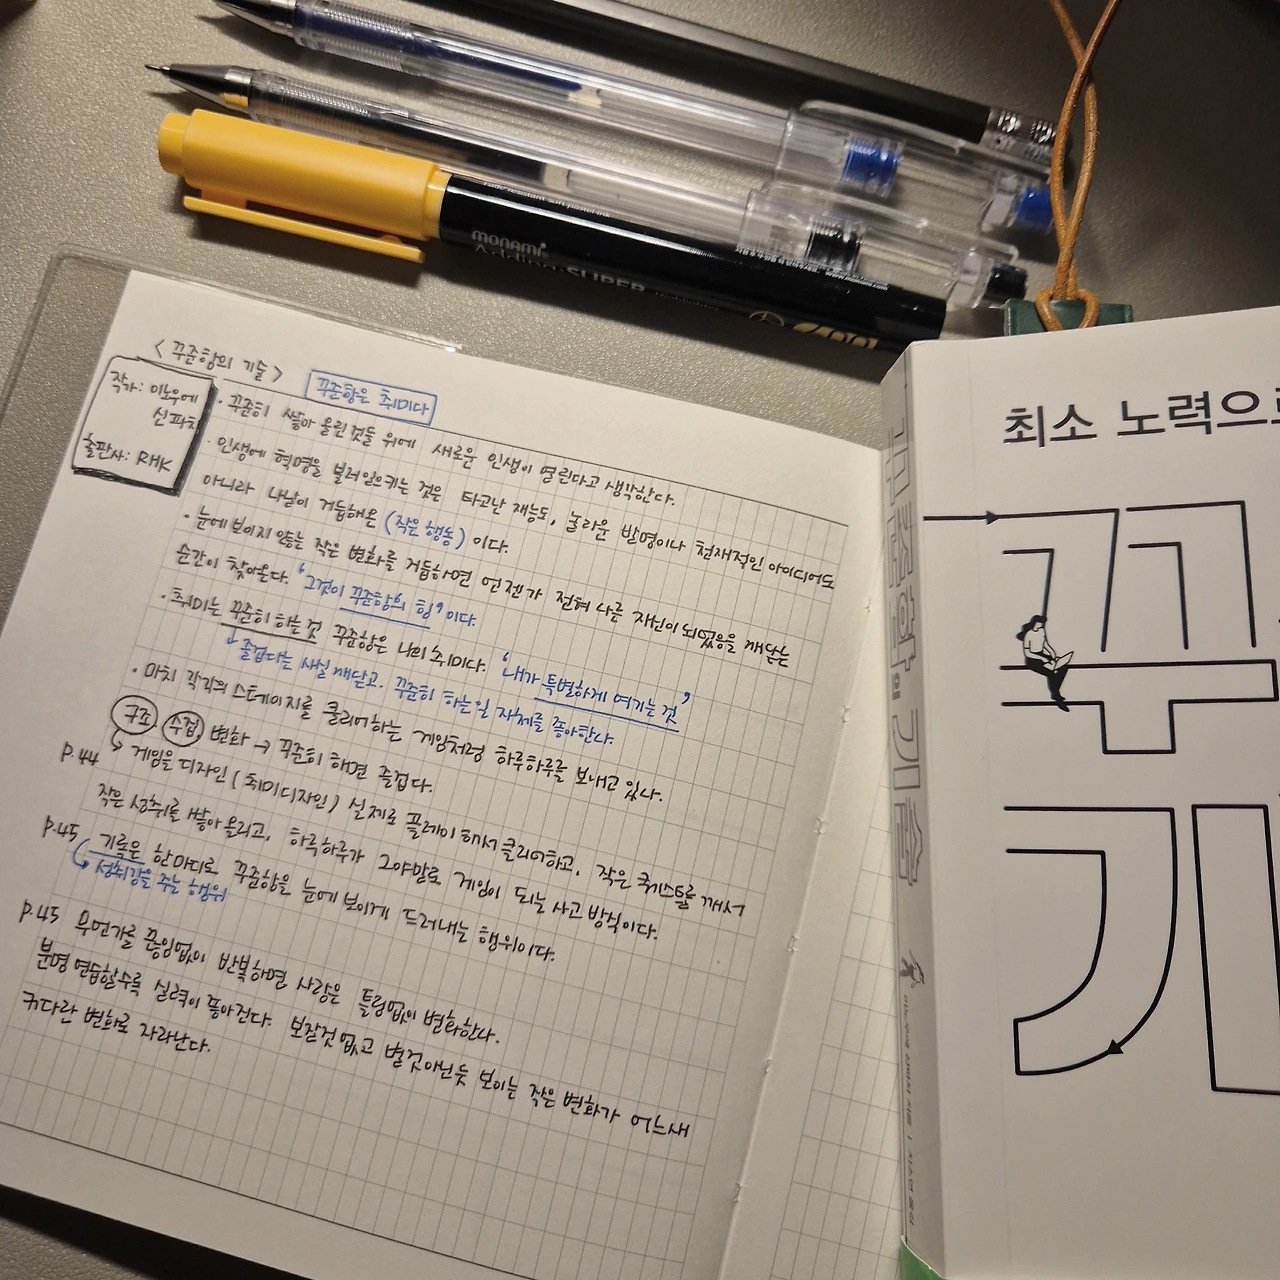 monami
SUPER
<꾸준함의 기술>
꾸준함은 취미다
작가: 이노우에
신파치
출판사: RHK
· 꾸준히 쌓아 올린 것들 위에 새로운 인생이 열린다고 생각한다.
· 인생에 혁명을 불러일으키는 것은 타고난 재능도, 놀라운 발명이나 천재적인 아이디어도
아니라 나날이 거듭해온 (작은 행동) 이다.
· 눈에 보이지 않는 작은 변화를 거듭하면 언젠가 전혀 다른 자신이 되었음을 깨닫는
순간이 찾아온다. '그것이 꾸준함의 힘'이다.
· 취미는 꾸준히 하는 것 꾸준함은 나의 취미다. '내가 특별하게 여기는 것'
↓ 즐겁다는 사실 깨닫고. 꾸준히 하는 일 자체를 좋아한다.
· 마치 각각의 스테이지를 클리어하는 게임처럼 하루하루를 보내고 있다.
구조, 수집, 변화 → 꾸준히 하면 즐겁다.
p.44 게임을 디자인 (취미 디자인) 실제로 플레이 해서 클리어하고, 작은 퀘스트를 깨서
작은 성취를 쌓아 올리고, 하루하루가 그야말로 게임이 되는 사고 방식이다.
p.45 기록은 한마디로 꾸준함을 눈에 보이게 드러내는 행위이다.
성취감을 주는 행위
p.45 무언가를 끊임없이 반복하면 사람은 틀림없이 변화한다.
분명 연습할수록 실력이 좋아진다. 보잘것 없고 별것 아닌듯 보이는 작은 변화가 어느새
커다란 변화로 자라난다.
꾸준함의 기술
최소 노력으로
꾸
기